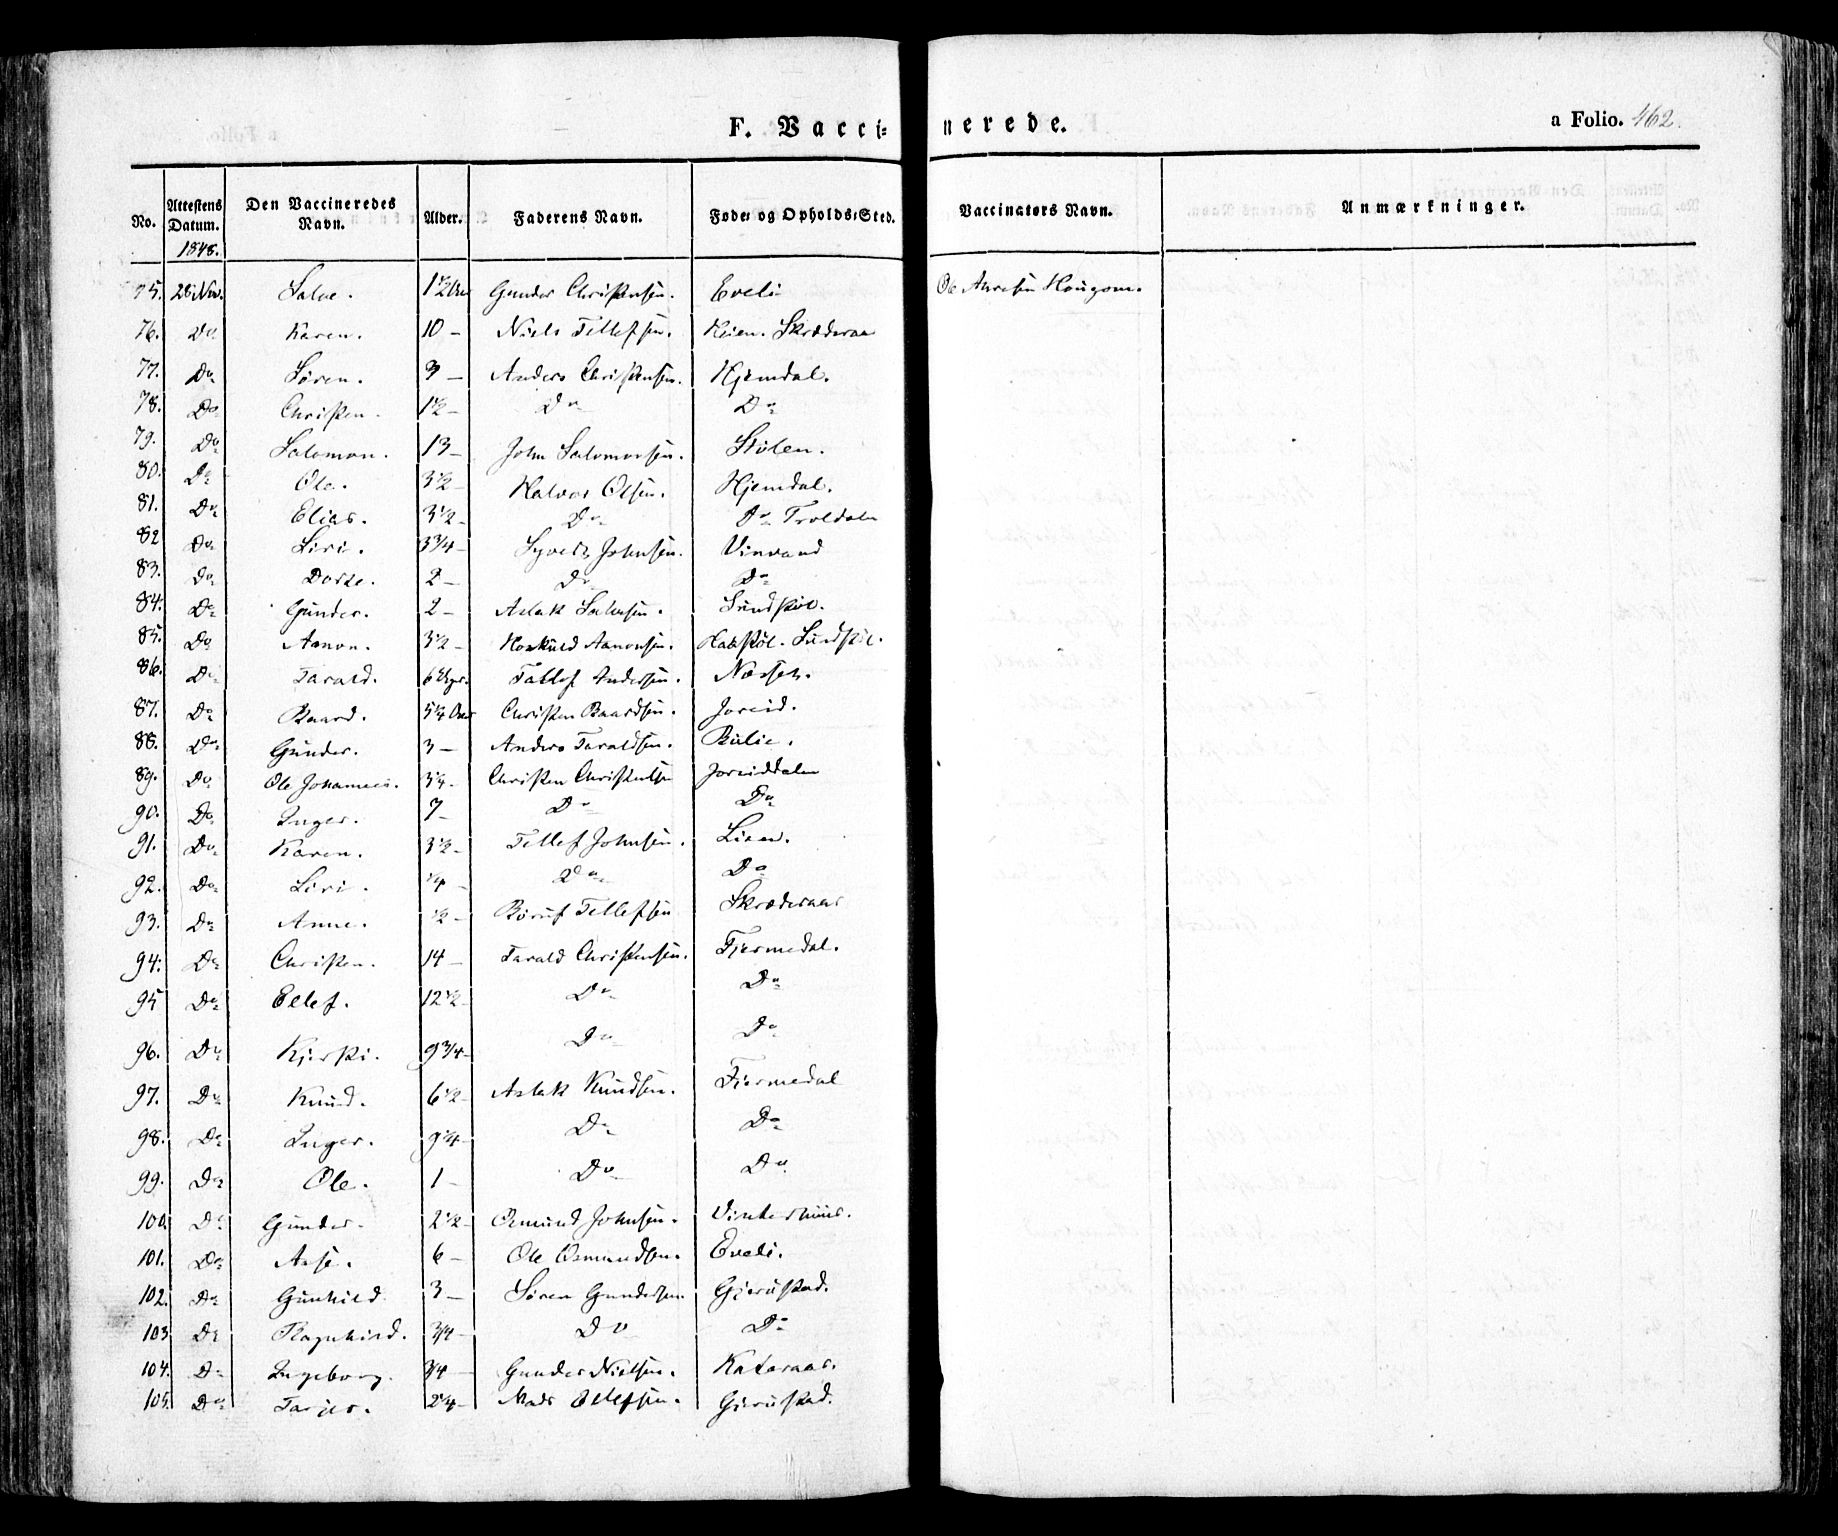 F. Vacci-nerede. a Folio. 462.
No. Attestens Datum. Den Vaccineredes Navn. Alder. Faderens Navn. Føde- og Opholds-Sted. Vaccinators Navn. Anmærkninger.
1848.
75. 28 Nov. Salve. 1½ Gunder Christensen. Eveli Ole Hougom.
76. Do Karen. 10 – Niels Tellefsen. Skrøderaa
77. Do Søren. 3 – Anders Christensen. Hjemdal.
78. Do Christen. 1½ – Do Do
79. Do Salomon. 13 – John Salomonsen. Stølen.
80. Do Ole. 3½ – Halvor Olsen. Hjemdal.
81. Do Elias. 3½ – Do Do Troldalen
82 Do Siri. 3¾ – Syvert Johnsen. Vinvand
83. Do Dorte. 2 – Do Do
84. Do Gunder. 2 – Aslak Salvesen. Sundstøl.
85. Do Aanon. 3½ – Aanonsen. Sundstøl.
86. Do Tarald. 6 Uger. Tellef Andersen. Næsset.
87. Do Baard. 5¼ Christen Baardsen. Joreid.
88. Do Gunder. 3 – Anders Taraldsen. Bulie.
89. Do Ole Johannes. 3¼ – Christen Christensen Joreiddalen
90. Do Inger. 7 – Do Do
91. Do Karen. 3½ – Tellef Johnsen. Lien.
92. Do Siri. ¼ – Do Do
93. Do Anne. ½ – Tellefsen Skrøderaas
94. Do Christen. 14 – Tarald Christensen. Fjermedal.
95 Do Ellef. 12½ – Do Do
96. Do Kjersti. 9¾ – Do Do
97. Do Knud. 6½ – Aslak Knudsen. Fiermedal
98. Do Inger. 9¼ – Do Do
99. Do Ole. 1 – Do Do
100. Do Gunder. 2½ – Osmund Johnsen. Vinterhuus.
101. Do Aase. 6 – Ole Osmundsen. Eveli.
102. Do Gunhild 3 – Søren Gundersen Gjerustad.
103 Do Ragnhild. ¾ – Do Do
104. Do Ingeborg. ¾ – Gunder Nielsen. Kateraas.
105. Do Tarjer. 2¼ – Mads Ellefsen. Gjerustad.